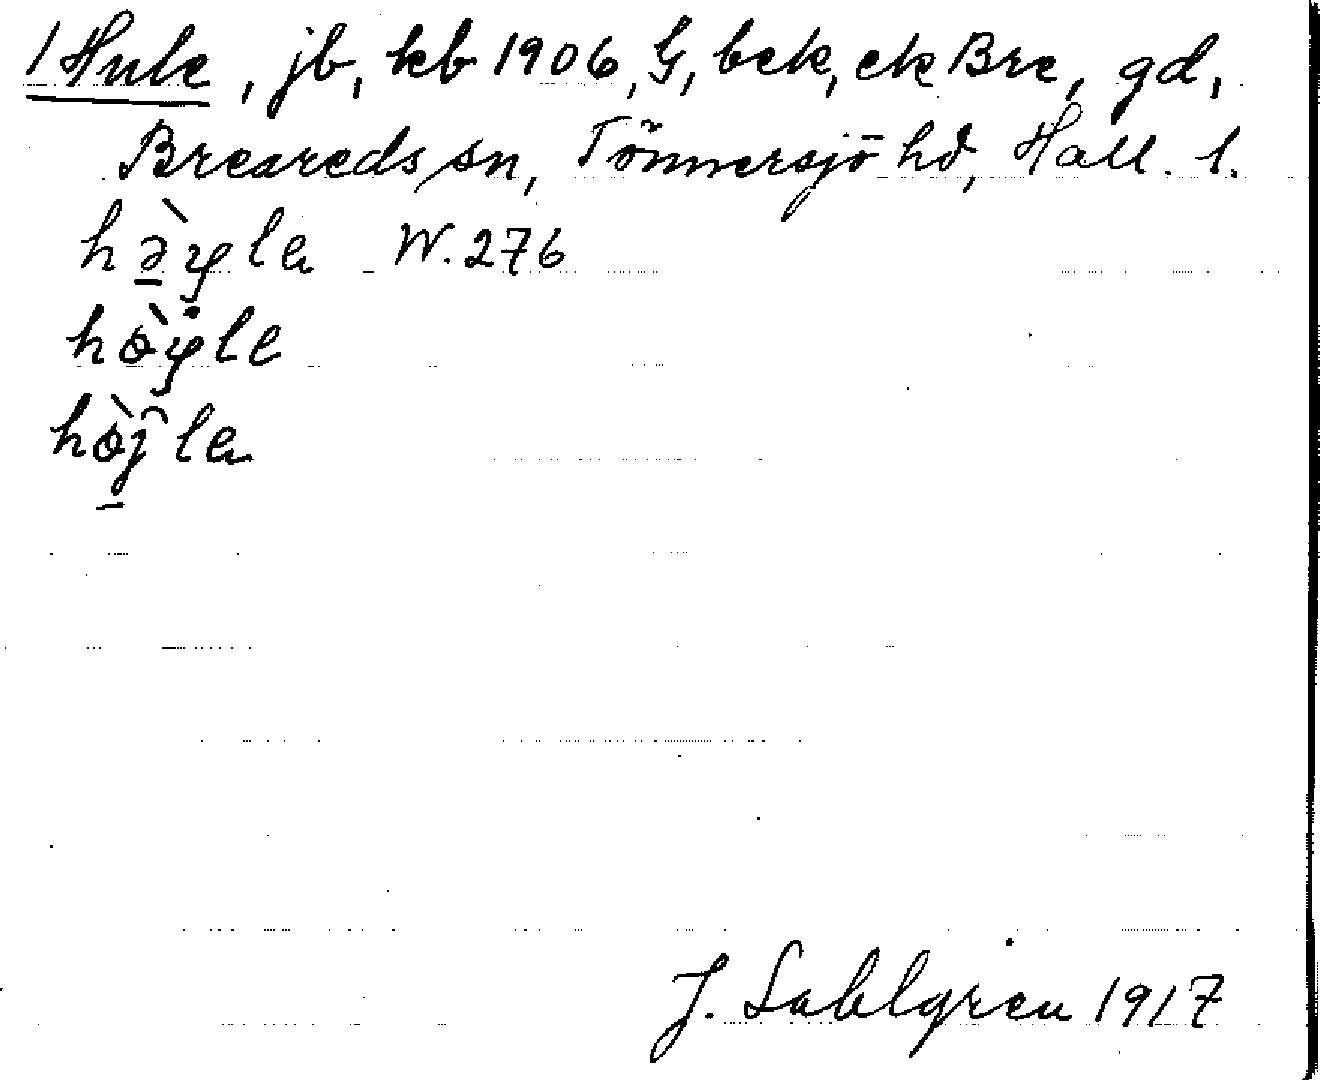 1 Hule, jb, kb 1906, G, bek, ek Bre, gd,
Breareds sn, Tönnersjö hd, Hall. l.
W. 276
J. Sahlgren 1917